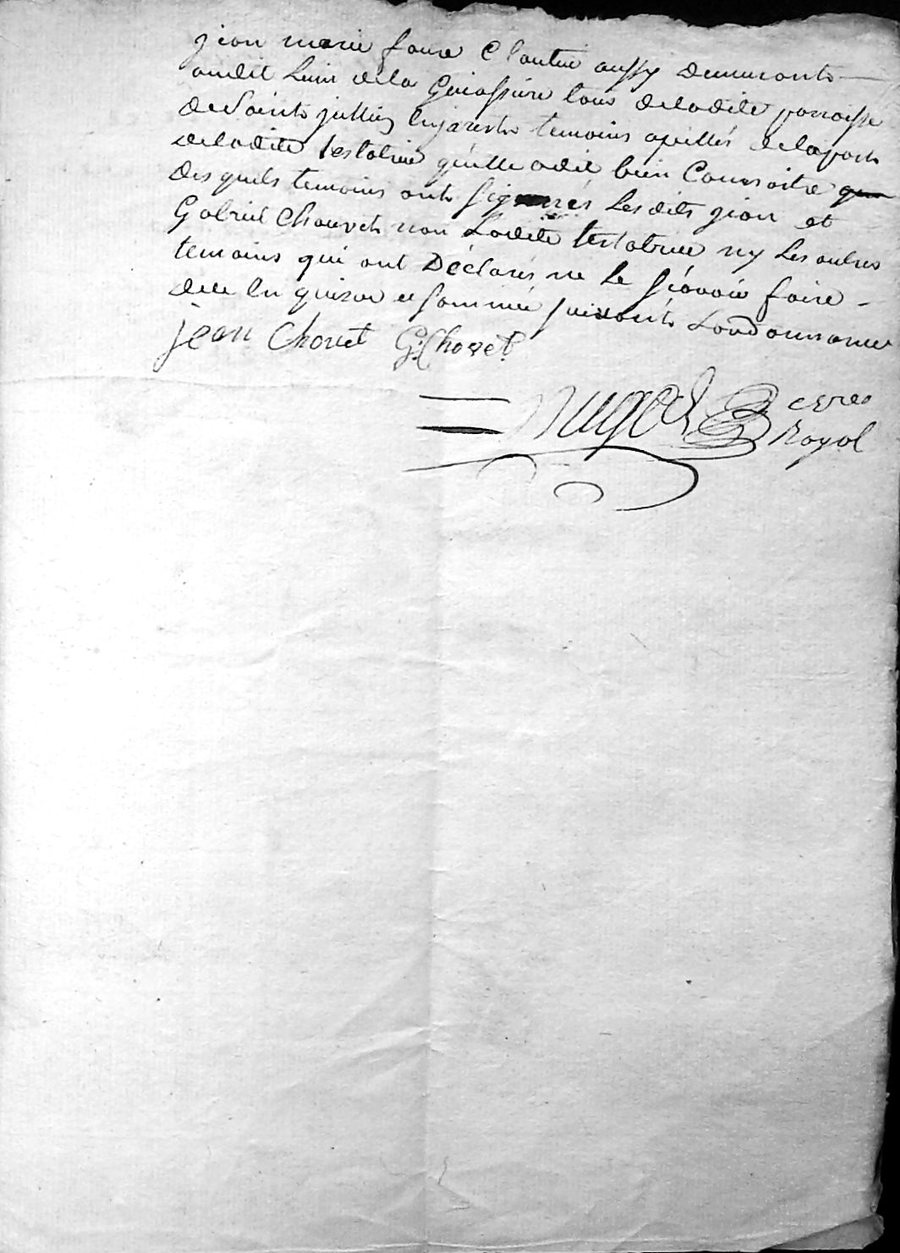 jean marie faure Clautre aussy demeurants
audit Lieu de la tous deladite parroisse
de Saint jullien temoins apellés delapart
deladite testatrice quelle adit bien Connoitre
desquels temoins ont signés Lesdits jean et
Gabriel Chouvet non Ladite testatrice ny les autres
temoins qui ont Déclarés ne le sçavoir faire
de ce Enquizes et Sommée suivants Lordonnance
jean Chovet G: Chovet
Royal